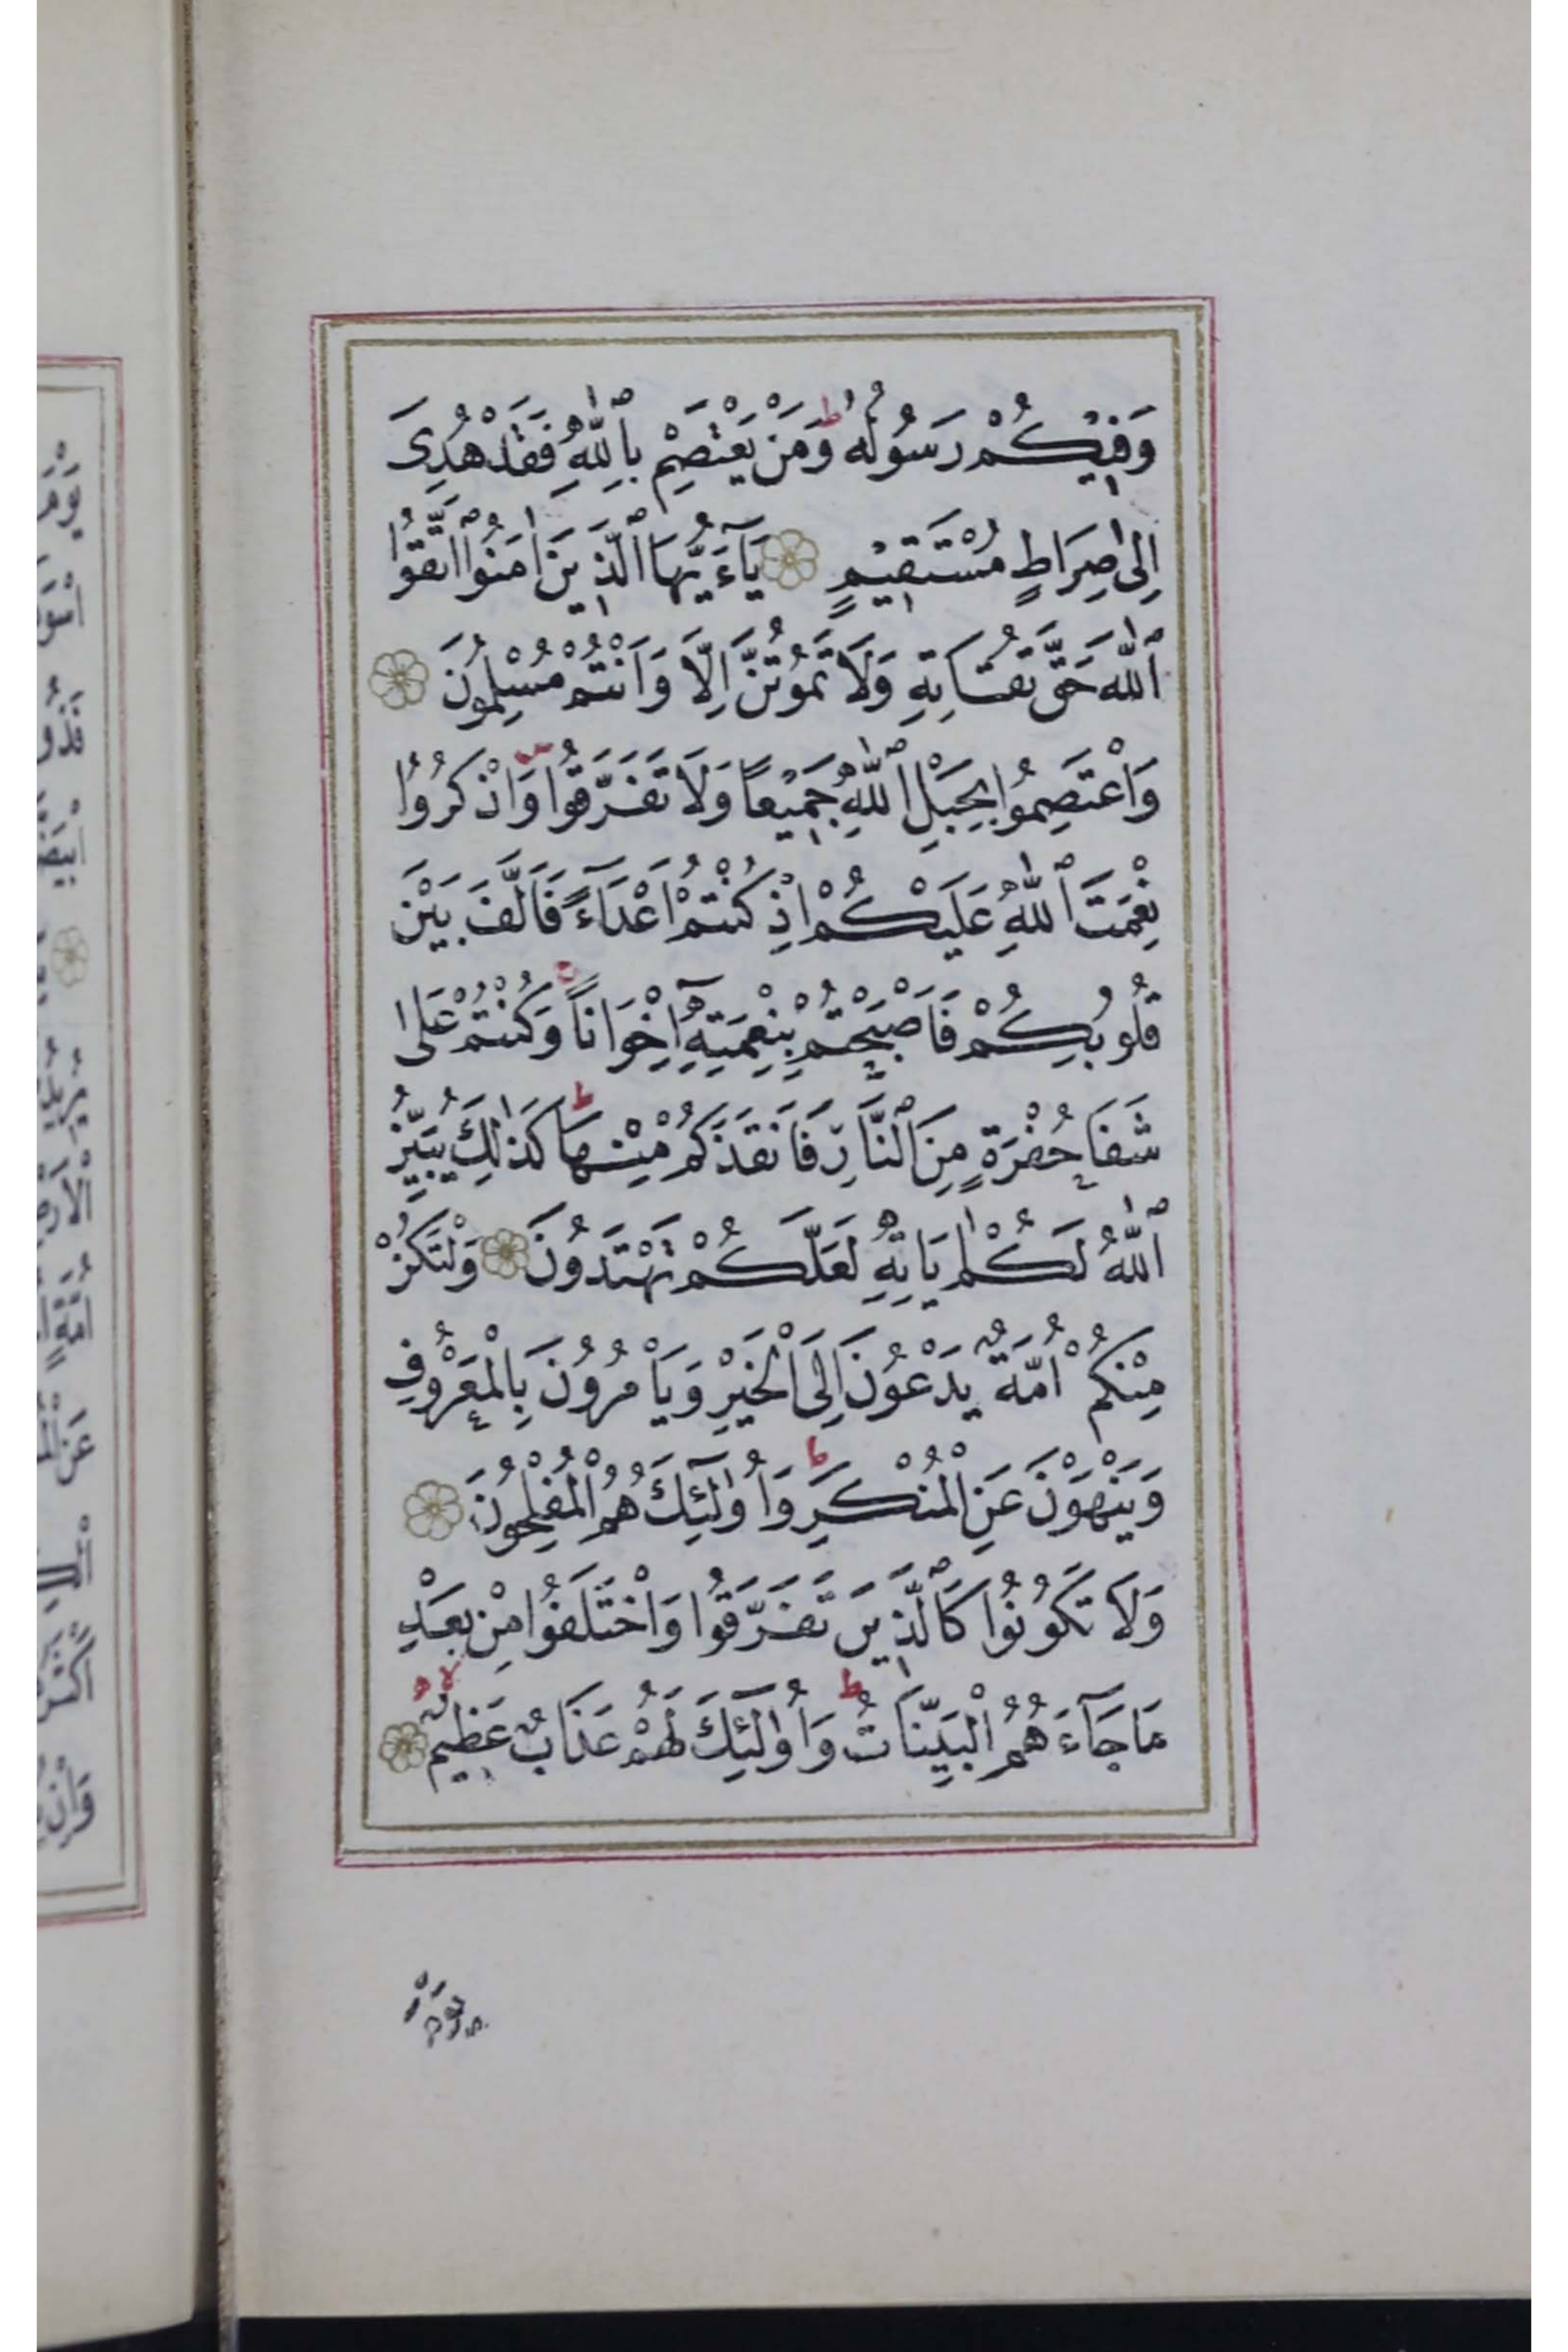 وَفِيْكُمْ رَسُولُهُ ط وَمَنْ يَعْتَصِمْ بِاللّٰهِ فَقَدْ هُدِىَ
اِلٰى صِرَاطٍ مُسْتَقِيْمٍ يَآءَيُّهَا الَّذِينَ اٰمَنُوا اتَّقُوا
اللّٰهَ حَقَّ تُقَاتِهِ وَلَا تَمُوتُنَّ اِلَّا وَاَنْتُمْ مُسْلِمُونَ
وَاعْتَصِمُوا بِحَبْلِ اللّٰهِ جَمِيْعًا وَلَا تَفَرَّقُوا وَاذْكُرُوا
نِعْمَتَ اللّٰهِ عَلَيْكُمْ اِذْ كُنْتُمْ اَعْدَآءً فَاَلَّفَ بَيْنَ
قُلُوبِكُمْ فَاَصْبَحْتُمْ بِنِعْمَتِهِٓ اِخْوَانًا ج وَكُنْتُمْ عَلٰى
شَفَا حُفْرَةٍ مِنَ النَّارِ فَاَنْقَذَكُمْ مِنْهَا ط كَذٰلِكَ يُبَيِّنُ
اللّٰهُ لَكُمْ اٰيَاتِهِ لَعَلَّكُمْ تَهْتَدُونَ وَلْتَكُنْ
مِنْكُمْ اُمَّةٌ يَدْعُونَ اِلَى الْخَيْرِ وَيَاْمُرُونَ بِالْمَعْرُوفِ
وَيَنْهَوْنَ عَنِ الْمُنْكَرِ ط وَاُولٰٓئِكَ هُمُ الْمُفْلِحُونَ
وَلَا تَكُونُوا كَالَّذِينَ تَفَرَّقُوا وَاخْتَلَفُوا مِنْ بَعْدِ
مَا جَآءَهُمُ الْبَيِّنَاتُ ط وَاُولٰٓئِكَ لَهُمْ عَذَابٌ عَظِيمٌ لا
يَوْمَ